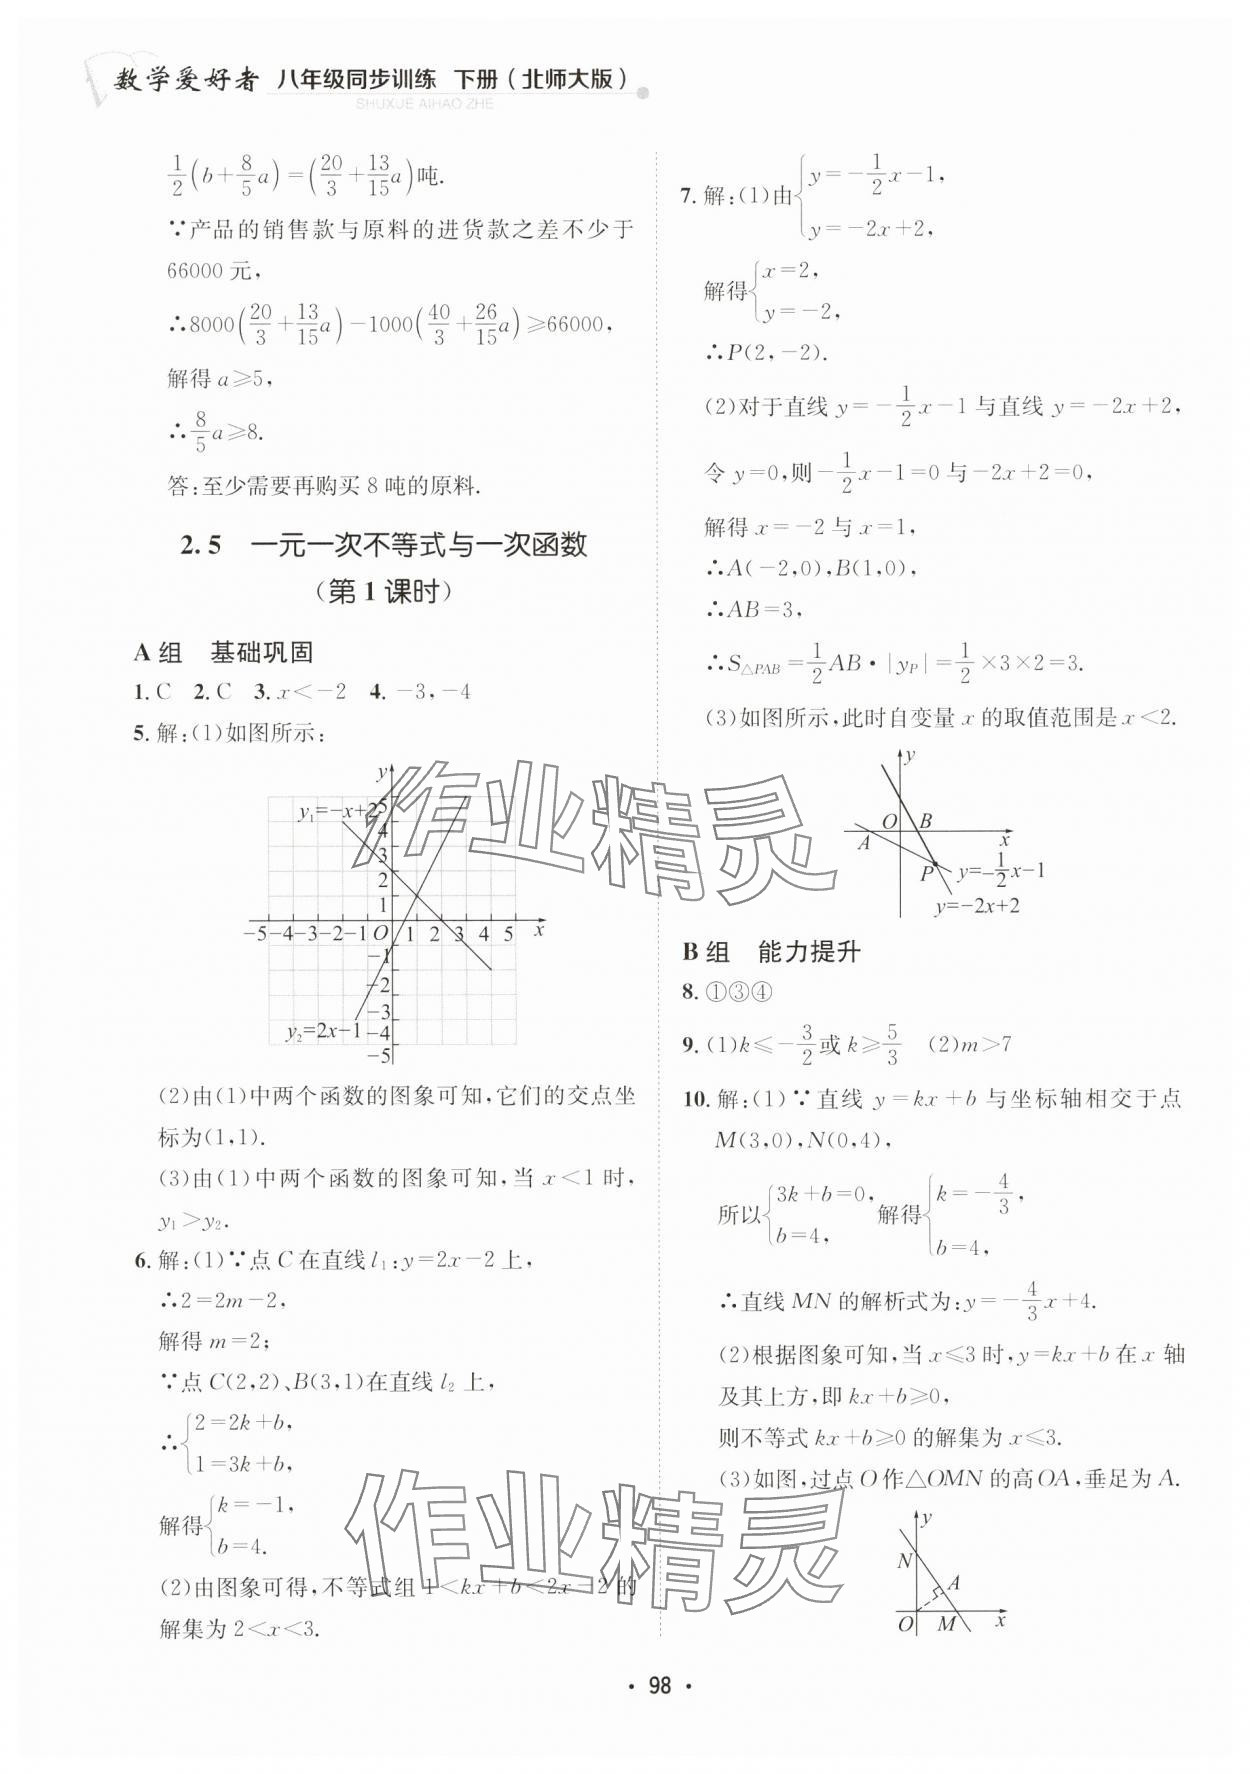 数学爱好者 八年级同步训练 下册（北师大版）
SHUXUE AIHAO ZHE
1/2(b+8/5a)=(20/3+13/15a)吨.
∵产品的销售款与原料的进货款之差不少于
66000元,
∴8000(20/3+13/15a)-1000(40/3+26/15a)≥66000,
解得a≥5,
∴8/5a≥8.
答:至少需要再购买8吨的原料.
2.5 一元一次不等式与一次函数
(第1课时)
A组 基础巩固
1.C 2.C 3.x<-2 4.-3,-4
5.解:(1)如图所示:
y
y₁=-x+2
5
4
3
2
1
-5-4-3-2-1 O 1 2 3 4 5 x
-1
-2
-3
y₂=2x-1
-4
-5
(2)由(1)中两个函数的图象可知,它们的交点坐
标为(1,1).
(3)由(1)中两个函数的图象可知,当x<1时,
y₁>y₂.
6.解:(1)∵点C在直线l₁:y=2x-2上,
∴2=2m-2,
解得m=2;
∵点C(2,2)、B(3,1)在直线l₂上,
∴{2=2k+b,
1=3k+b,
解得{k=-1,
b=4.
(2)由图象可得,不等式组1<kx+b<2x-2的
解集为2<x<3.
7.解:(1)由{y=-1/2x-1,
y=-2x+2,
解得{x=2,
y=-2,
∴P(2,-2).
(2)对于直线y=-1/2x-1与直线y=-2x+2,
令y=0,则-1/2x-1=0与-2x+2=0,
解得x=-2与x=1,
∴A(-2,0),B(1,0),
∴AB=3,
∴S△PAB=1/2AB·|yP|=1/2×3×2=3.
(3)如图所示,此时自变量x的取值范围是x<2.
y
O B
A x
P y=-1/2x-1
y=-2x+2
B组 能力提升
8.①③④
9.(1)k≤-3/2或k≥5/3 (2)m>7
10.解:(1)∵直线y=kx+b与坐标轴相交于点
M(3,0),N(0,4),
所以{3k+b=0,
b=4,
解得{k=-4/3,
b=4,
∴直线MN的解析式为:y=-4/3x+4.
(2)根据图象可知,当x≤3时,y=kx+b在x轴
及其上方,即kx+b≥0,
则不等式kx+b≥0的解集为x≤3.
(3)如图,过点O作△OMN的高OA,垂足为A.
y
N
A
O M x
作业精灵
作业精灵
·98·